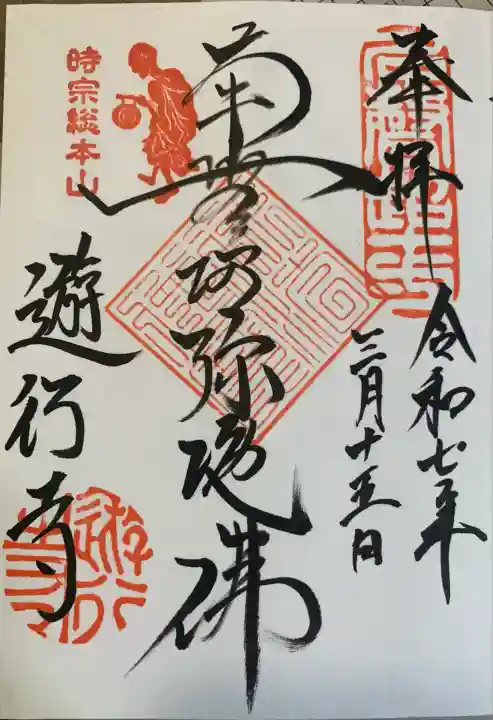 奉拝
令和七年
三月十五日
南無阿弥陀佛
時宗総本山
遊行寺